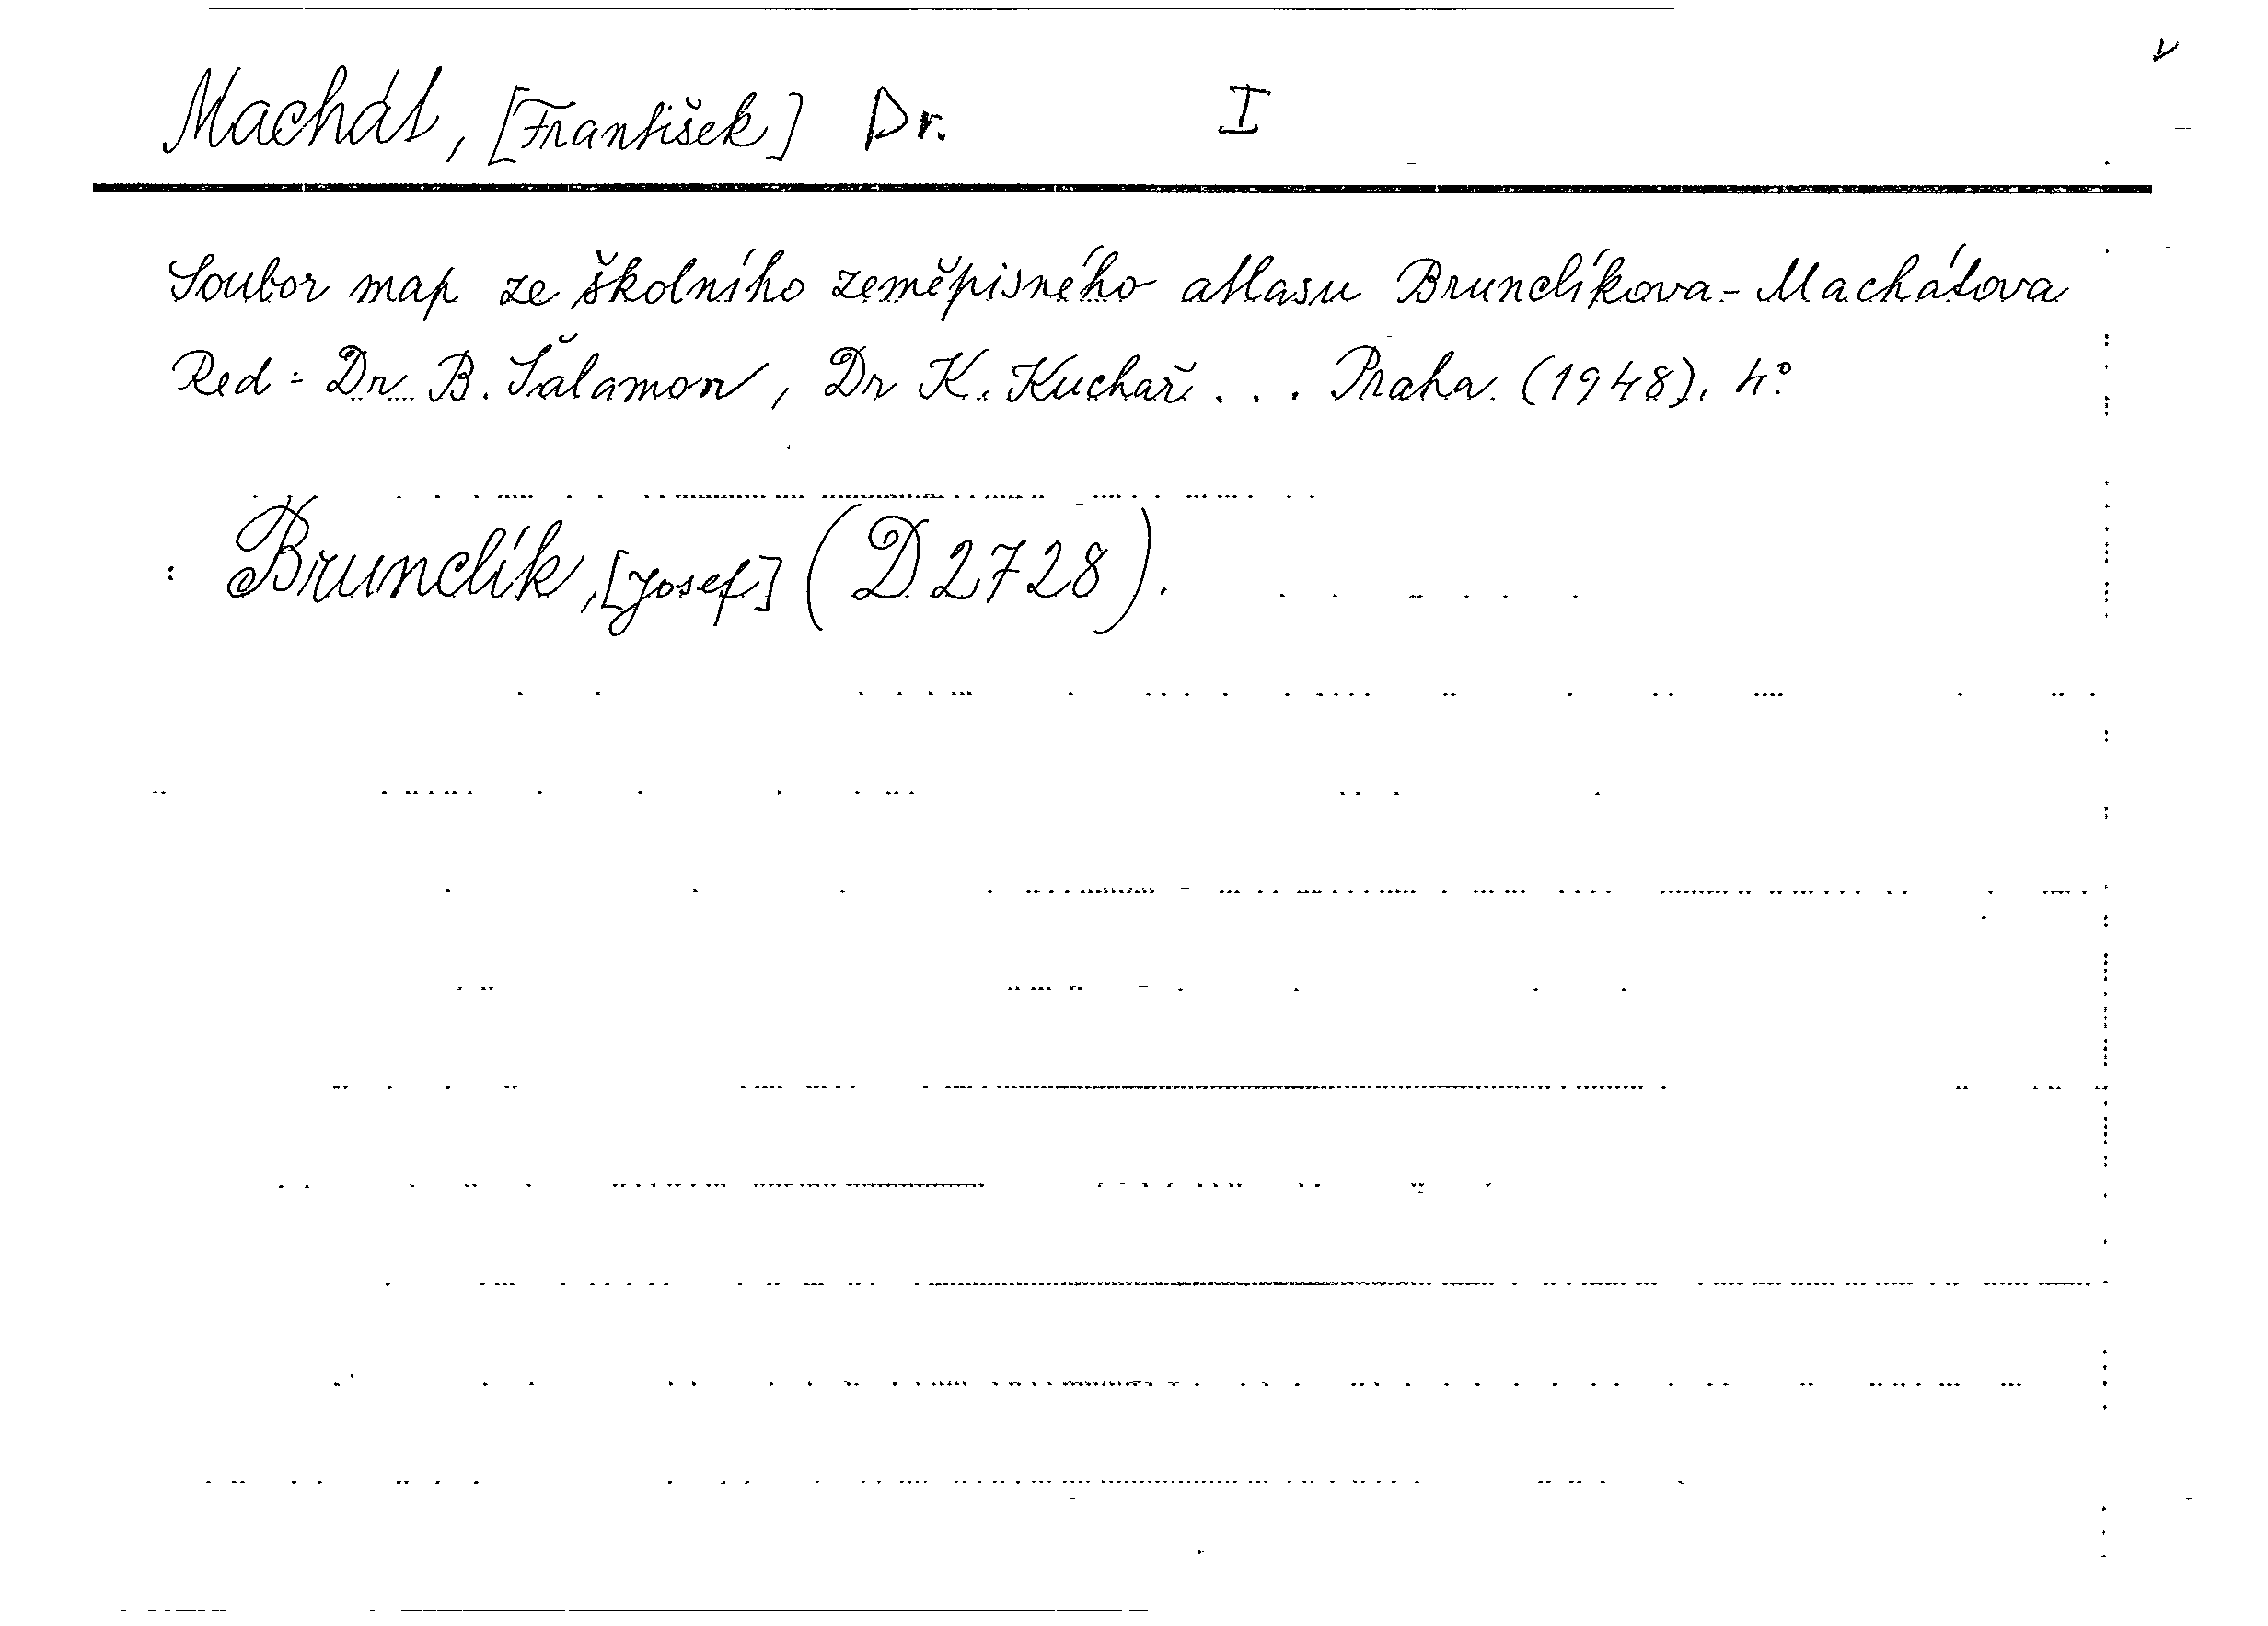 Machát, [František] Dr. I
Soubor map ze školního zeměpisného atlasu Brunclíkova-Machátova
Red: Dr B. Šalamon, Dr K. Kuchař... Praha. (1948). 4°
: Brunclík, [Josef] (D 2728).